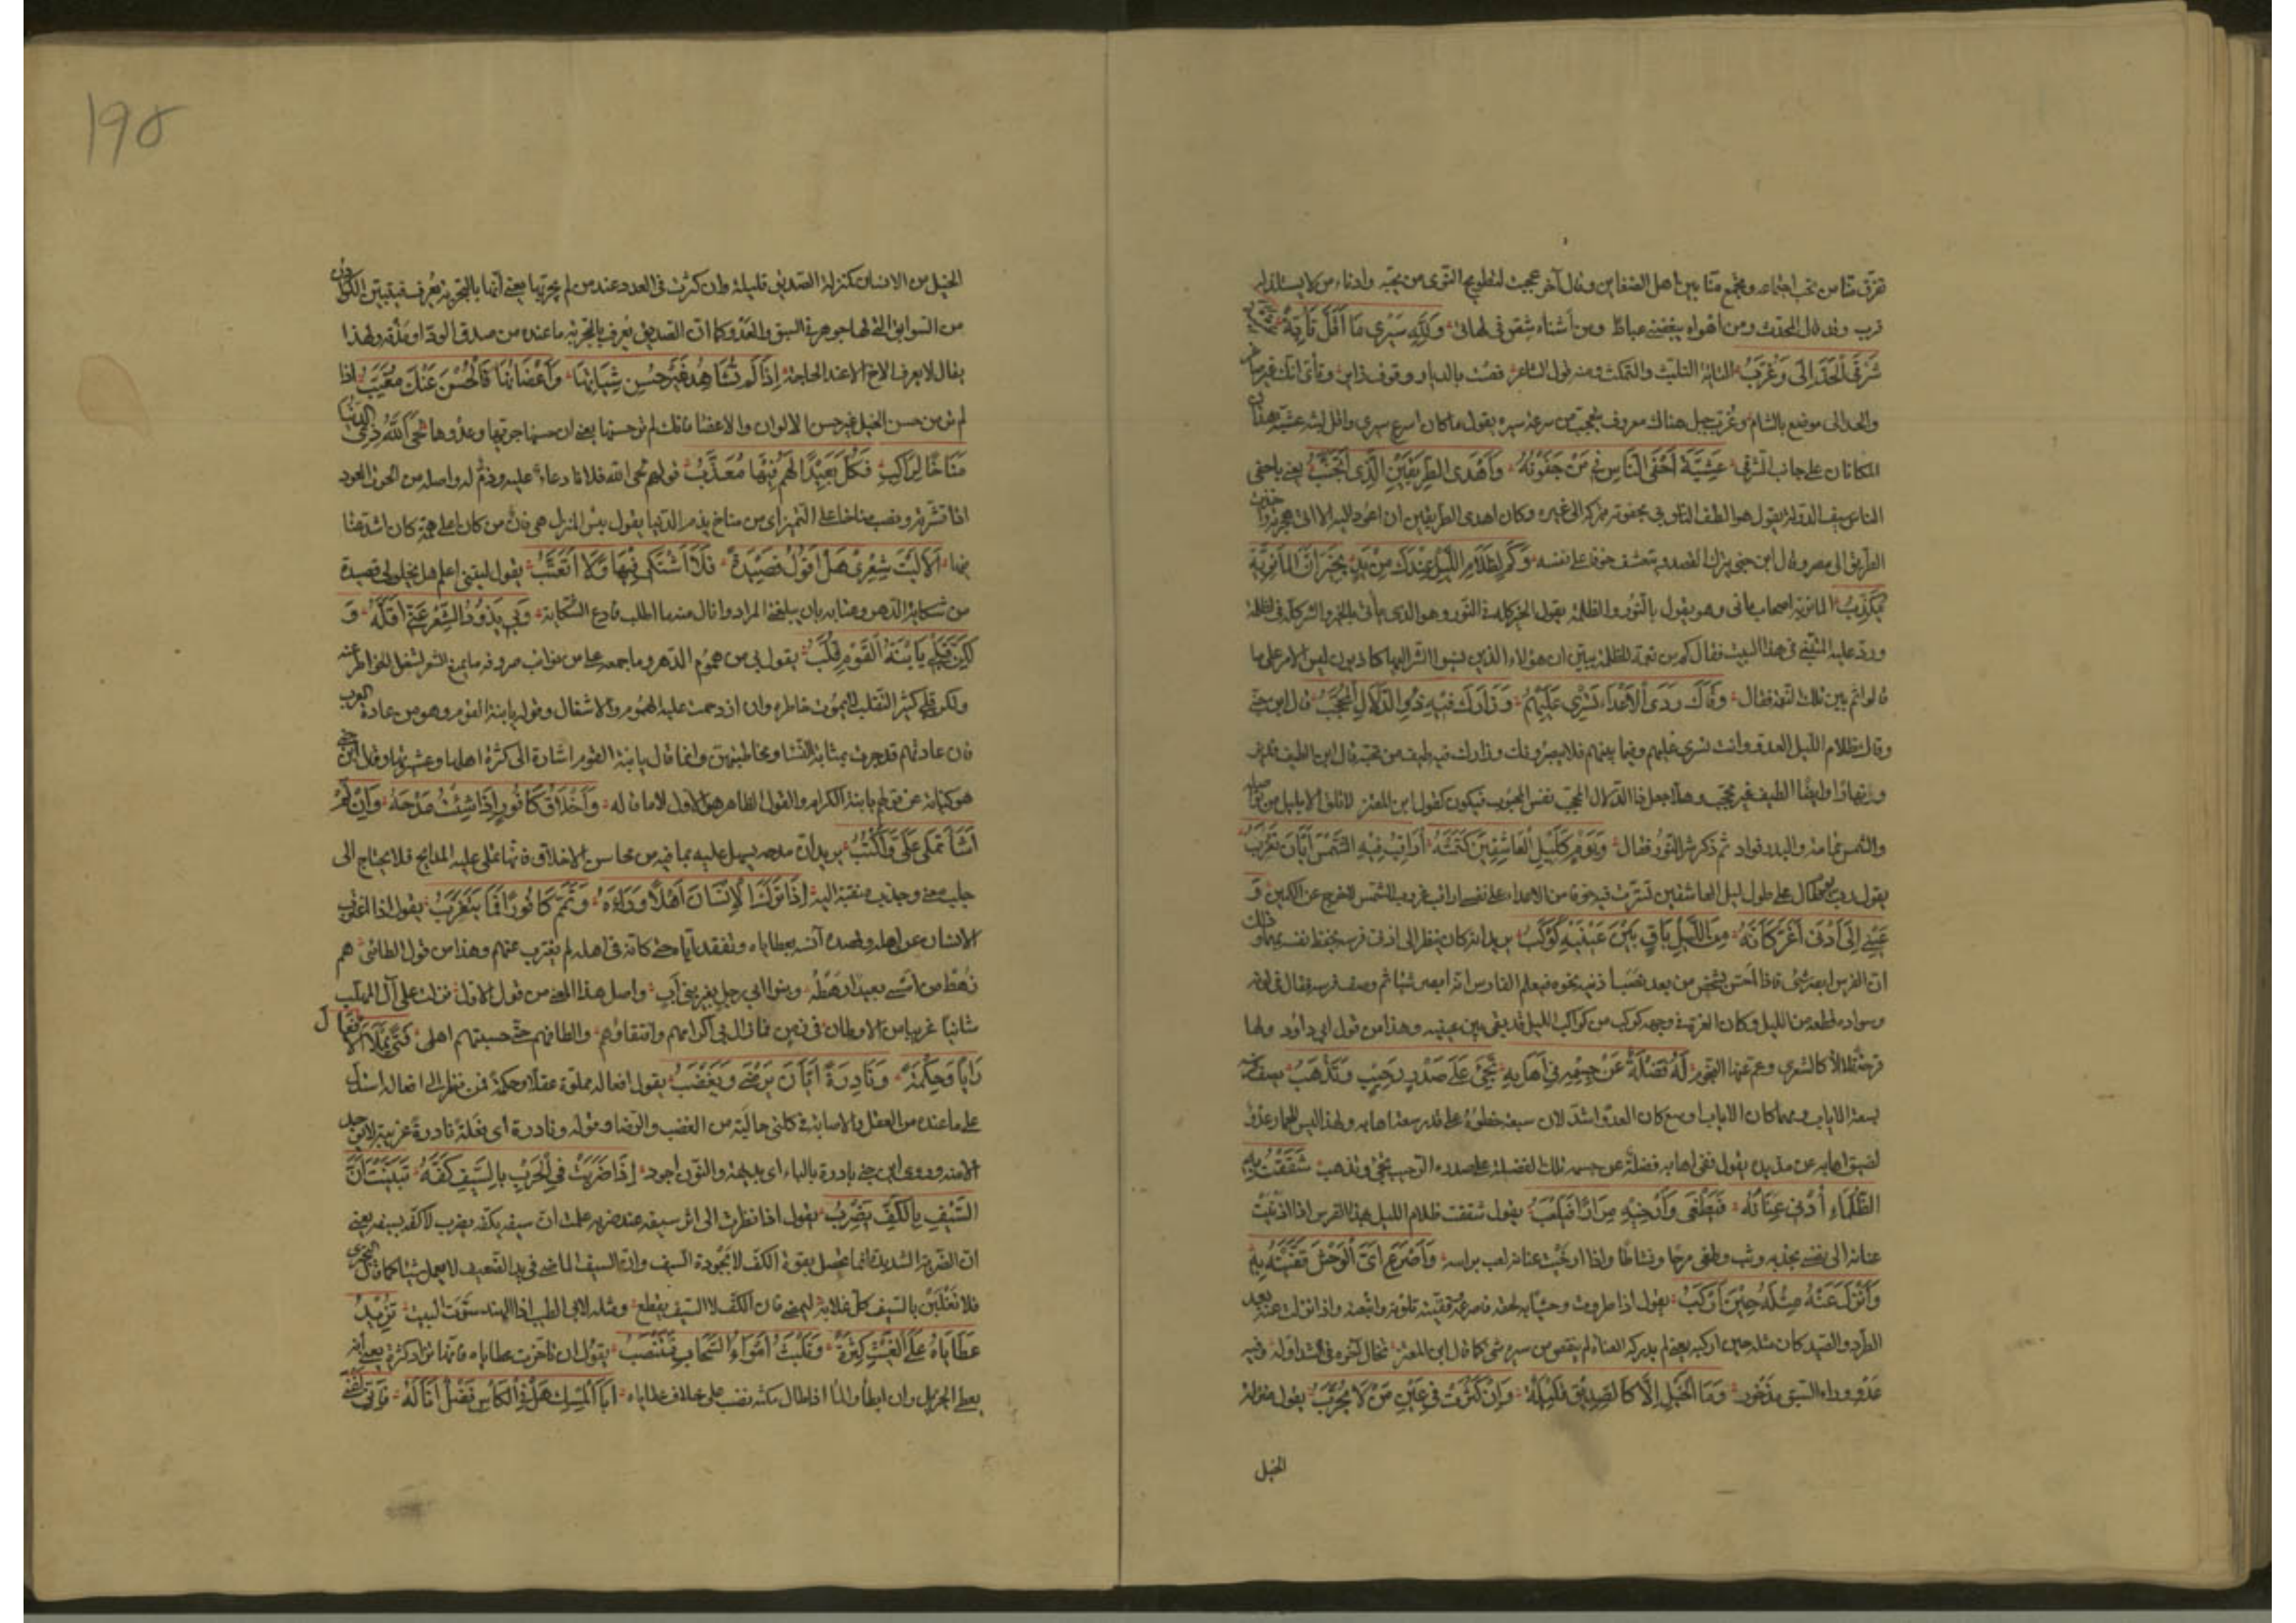 تفرق بيننا من نحب اجتماعه ويجمع منا بين اهل الضغاين وقال آخر عجبت لتطويح النوى من نحبه وادناء من لا يستلذ له
قرب وقد قال المحدث ومن اهواه يبغضني عناداً ومن أشناه شِقو في لهاتي وَلِلّهِ سَيْرِي مَا أَقَلَّ تَايَّةً
شَرْقيَّ الْحَدَالَى وَغُرَّبُ التائيّة التلبّث والتمكث ومنه قول الشاعر قف بالديار وقوف زاير وتأيّ انك غير صاغر
والحدالى موضع بالشام وغُرّب جبل هناك معروف يتعجب من سرعة سيره يقول ما كان اسرع سيري واقل لبثه عشيّة هذان
المكانان على جانب الشرقي عَشِيَّةَ أَحْفَى النَّاسِ بِي مَنْ جَفَوْتُهُ وَأَهْدَى الطَّرِيقَيْنِ الَّذِي أَتَجَنَّبُ يعني باحفى
الناس سيف الدولة يقول هو الطف الناس بي جفوته بتركه الى غيره وكان اهدى الطريقين ان اعود اليه الا اني هجرته
الطريق الى مصر وقال ابن جني يترك القصد ويتعسّف خوفا على نفسه وَكَمْ لِظَلَامِ اللَّيْلِ عِنْدَكَ مِنْ يَدٍ تُخَبِّرُ أَنَّ الْمَانَوِيَّةَ
تَكْذِبُ المانوية اصحاب ماني وهو يقول بالنور والظلمة يقول الخير كله في النور وهو الذي يأتي بالخير والشر كله في الظلمة
ورد عليه المتنبي في هذا البيت فقال كم من نعمة للظلمة يبيّن ان هؤلاء الذين نسبوا الشر اليها كاذبون ليس الامر على ما
قالوا ثم بين تلك النعمة فقال وَقَاكَ رَدَى الْأَعْدَاءِ تَسْرِي عَلَيْهِمُ وَزَارَكَ فِيهِ ذُو الدَّلَالِ الْمُحَجَّبُ قال ابن جني
وقاك ظلام الليل العدو وانت تسري عليهم وفيما بينهم فلا يبصرونك وزارك فيه طيف من تحبه قال ابن
وايضا الطيف غير محجب وهلا جعل ذا الدلال المحجب نفس المحبوب فيكون كقول ابن المعتز لا تلق الا بليل من تواصله
والشمس نمّامة والليل قوّاد ثم ذكر شر النور فقال وَيَوْمٍ كَلَيْلِ الْعَاشِقِينَ كَمَنْتُهُ أُرَاقِبُ فِيهِ الشَّمْسَ أَيَّانَ تَغْرُبُ
يقول رب يوم طال علي طول ليل العاشقين تسترت فيه خوفا من الاعداء على نفسي اراقب غروب الشمس لاخرج عن الكمين وَ
عَيْنِي إِلَى أُذْنَيْ أَغَرَّ كَأَنَّهُ مِنَ اللَّيْلِ بَاقٍ بَيْنَ عَيْنَيْهِ كَوْكَبُ يريد انه كان ينظر الى اذني فرسه يحفظ نفسه بهما وذلك
ان الفرس ابصر شيء فاذا احس بشخص من بعيد نصب اذنيه نحوه فيعلم الفارس انه ابصر شيئا ثم وصف فرسه فقال في لونه
وسواده قطعة من الليل وكان الغرة في وجهه كوكب من كواكب الليل قد بقي بين عينيه وهذا من قول ابي داود ولها
قرحة تلألأ كالشعرى لَهُ فَضْلَةٌ عَنْ جِسْمِهِ فِي إِهَابِهِ تَجِيءُ عَلَى صَدْرٍ رَحِيبٍ وَتَذْهَبُ يصفه
بسعة الاهاب ومهما كان الاهاب اوسع كان العدو اشد لان سعة خطوه على قدر سعة اهابه ولهذا ليس للحمار عدو
لضيق اهابه عن مديده يقول ففي اهابه فضلة عن جسمه تلك الفضلة على صدره الرحيب تجي وتذهب شَقَقْتُ بِهِ
الظَّلْمَاءَ أُدْنِي عِنَانَهُ فَيَطْغَى وَأُرْخِيهِ مِرَارًا فَيَلْعَبُ يقول شققت ظلام الليل بهذا الفرس اذا ادنيت
عنانه الى نفسي بجذبه وثب وطغى مرحا ونشاطا واذا ارخيت عنانه لعب براسه وَأَصْرَعُ أَيَّ الْوَحْشِ قَفَّيْتُهُ بِهِ
وَأَنْزِلُ عَنْهُ مِثْلَهُ حِينَ أَرْكَبُ يقول اذا طردت وحشا به لحقه فاصرعه وقفيته تلوته واتبعته واذا نزلت عنه بعد
الطرد والصيد كان مثله حين اركبه يعني لم يدركه العناء ولم ينقص من سيره شي كما قال ابن المعتز تخال آخره في الشد اوله وفيه
عدو وراء السبق مذخور وَمَا الْخَيْلُ إِلَّا كَالصَّدِيقِ قَلِيلَةٌ وَإِنْ كَثُرَتْ فِي عَيْنِ مَنْ لَا يُجَرِّبُ يقول منزلة
الخيل
١٩٥
الخيل من الانسان كمنزلة الصديق قليلة وان كثرت في العدد عند من لم يجربها يعني انها بالتجربة تعرف فيتبين الكوادن
من السوابق التي لها جوهر في السبق والعدو كما ان الصديق يُعرف بالتجربة ما عنده من صدق الود او مذقه ولهذا
يقال لا يعرف الاخ الا عند الحاجة إِذَا لَمْ تُشَاهِدْ غَيْرَ حُسْنِ شِيَاتِهَا وَأَعْضَائِهَا فَالْحُسْنُ عَنْكَ مُغَيَّبُ اذا
لم تر من حسن الخيل غير حسن الالوان والاعضا فانك لم تر حسنها يعني ان حسنها جريها وعدوها لَحَى اللَّهُ ذِي الدُّنْيَا
مَنَاخًا لِرَاكِبٍ فَكُلُّ بَعِيدِ الْهَمِّ فِيهَا مُعَذَّبُ قولهم لحى الله فلانا دعاء عليه وذم له واصله من لحوت العود
اذا قشرته ونصب مناخا على التمييز اي من مناخ يذم الدنيا يقول بئس المنزل هي فان من كان اعلى همة كان اشد عنا
فيها أَلَا لَيْتَ شِعْرِي هَلْ أَقُولُ قَصِيدَةً فَلَا أَشْتَكِي فِيهَا وَلَا أَتَعَتَّبُ يقول ليتني اعلم هل يخلو لي قصيدة
من شكاية الدهر وعتابه بان يبلغني المراد وانال منها الطلب فادع الشكاية وَبِي مَا يَذُودُ الشِّعْرَ عَنِّي أَقَلُّهُ وَ
لَكِنَّ قَلْبِي يَا ابْنَةَ الْقَوْمِ قُلَّبُ يقول بي من هموم الدهر وما جمعه علي من نوايب صروفه ما يمنع الشعر لشغل الخواطر عنه
ولكن قلبي كثير التقلب لا يموت خاطره وان ازدحمت عليه الهموم والاشغال وقوله يا ابنة القوم وهو من عادة العرب
فان عادتهم قد جرت بمثابة النسا ومخاطبتهن وانما قال يا ابنة القوم اشارة الى كثرة اهلها وعشيرتها وقال ابن جني
هو كناية عن قولهم يا ابنة الكرام والقول الظاهر هو الاول لا ما قاله وَأَخْلَاقُ كَافُورٍ إِذَا شِئْتُ مَدْحَهُ وَإِنْ لَمْ
أَشَأْ تُمْلِي عَلَيَّ وَأَكْتُبُ يريد ان مدحه يسهل عليه بما فيه من محاسن الاخلاق فانها تملي عليه المدايح فلا يحتاج الى
جلب معنى وجذب منقبة اليه إِذَا تَرَكَ الْإِنْسَانُ أَهْلًا وَرَاءَهُ وَيَمَّمَ كَافُورًا فَمَا يَتَغَرَّبُ يقول اذا اغترب
الانسان عن اهله وقصده آنسه بعطاياه وتفقده اياه حتى كانه في اهله لم يغترب عنهم وهذا من قول الطائي هم
رهط من امسى بعيدا رهطه وبنو ابي رجل بغير بني اب واصل هذا المعنى من قول الاول نزلت على آل المهلب
شاتيا غريبا عن الاوطان في زمن فما زال بي اكرامهم وافتقادهم والطافهم حتى حسبتهم اهلي فَتًى يَمْلَأُ الْأَفْعَالَ
رَأْيًا وَحِكْمَةً وَنَادِرَةً أَيَّانَ يَرْضَى وَيَغْضَبُ يقول افعاله مملوة عقلا وحكمة فمن نظر الى افعاله استدل
على ما عنده من العقل والاصابة في كلتي حاليه من الغضب والرضا وقوله ونادرة اي فعلة نادرة غريبة
وروى ابن جني بادرة بالباء اي بديهة والنون اجود إِذَا ضَرَبَتْ فِي الْحَرْبِ بِالسَّيْفِ كَفُّهُ تَبَيَّنْتَ أَنَّ
السَّيْفَ بِالْكَفِّ يَضْرِبُ يقول اذا نظرت الى اثر سيفه عند ضربه علمت ان سيفه بكفه يضرب لا كفه بسيفه يعني
ان الضربة الشديدة انما تحصل بقوة الكف لا بجودة السيف وان السيف الماضي في يد الضعيف لا يعمل شيئا كما قال البحتري
فلا تغلبن بالسيف كل غلائه ليمضي فان الكف لا السيف يقطع ومثله لابي الطيب اذا الهند سوّت البيت تَزِيدُ
عَطَايَاهُ عَلَى اللَّبْثِ كَثْرَةً وَتَلْبَثُ أَمْوَاهُ السَّحَابِ فَتَنْضُبُ يقول ان تاخرت عطاياه فانها تزداد كثرة يعني انه
يعطي الجزيل وان ابطأ والماء اذا طال مكثه نضب على خلاف عطاياه أَبَا الْمِسْكِ هَلْ فِي الْكَأْسِ فَضْلٌ أَنَالُهُ فَإِنِّي أُغَنِّي